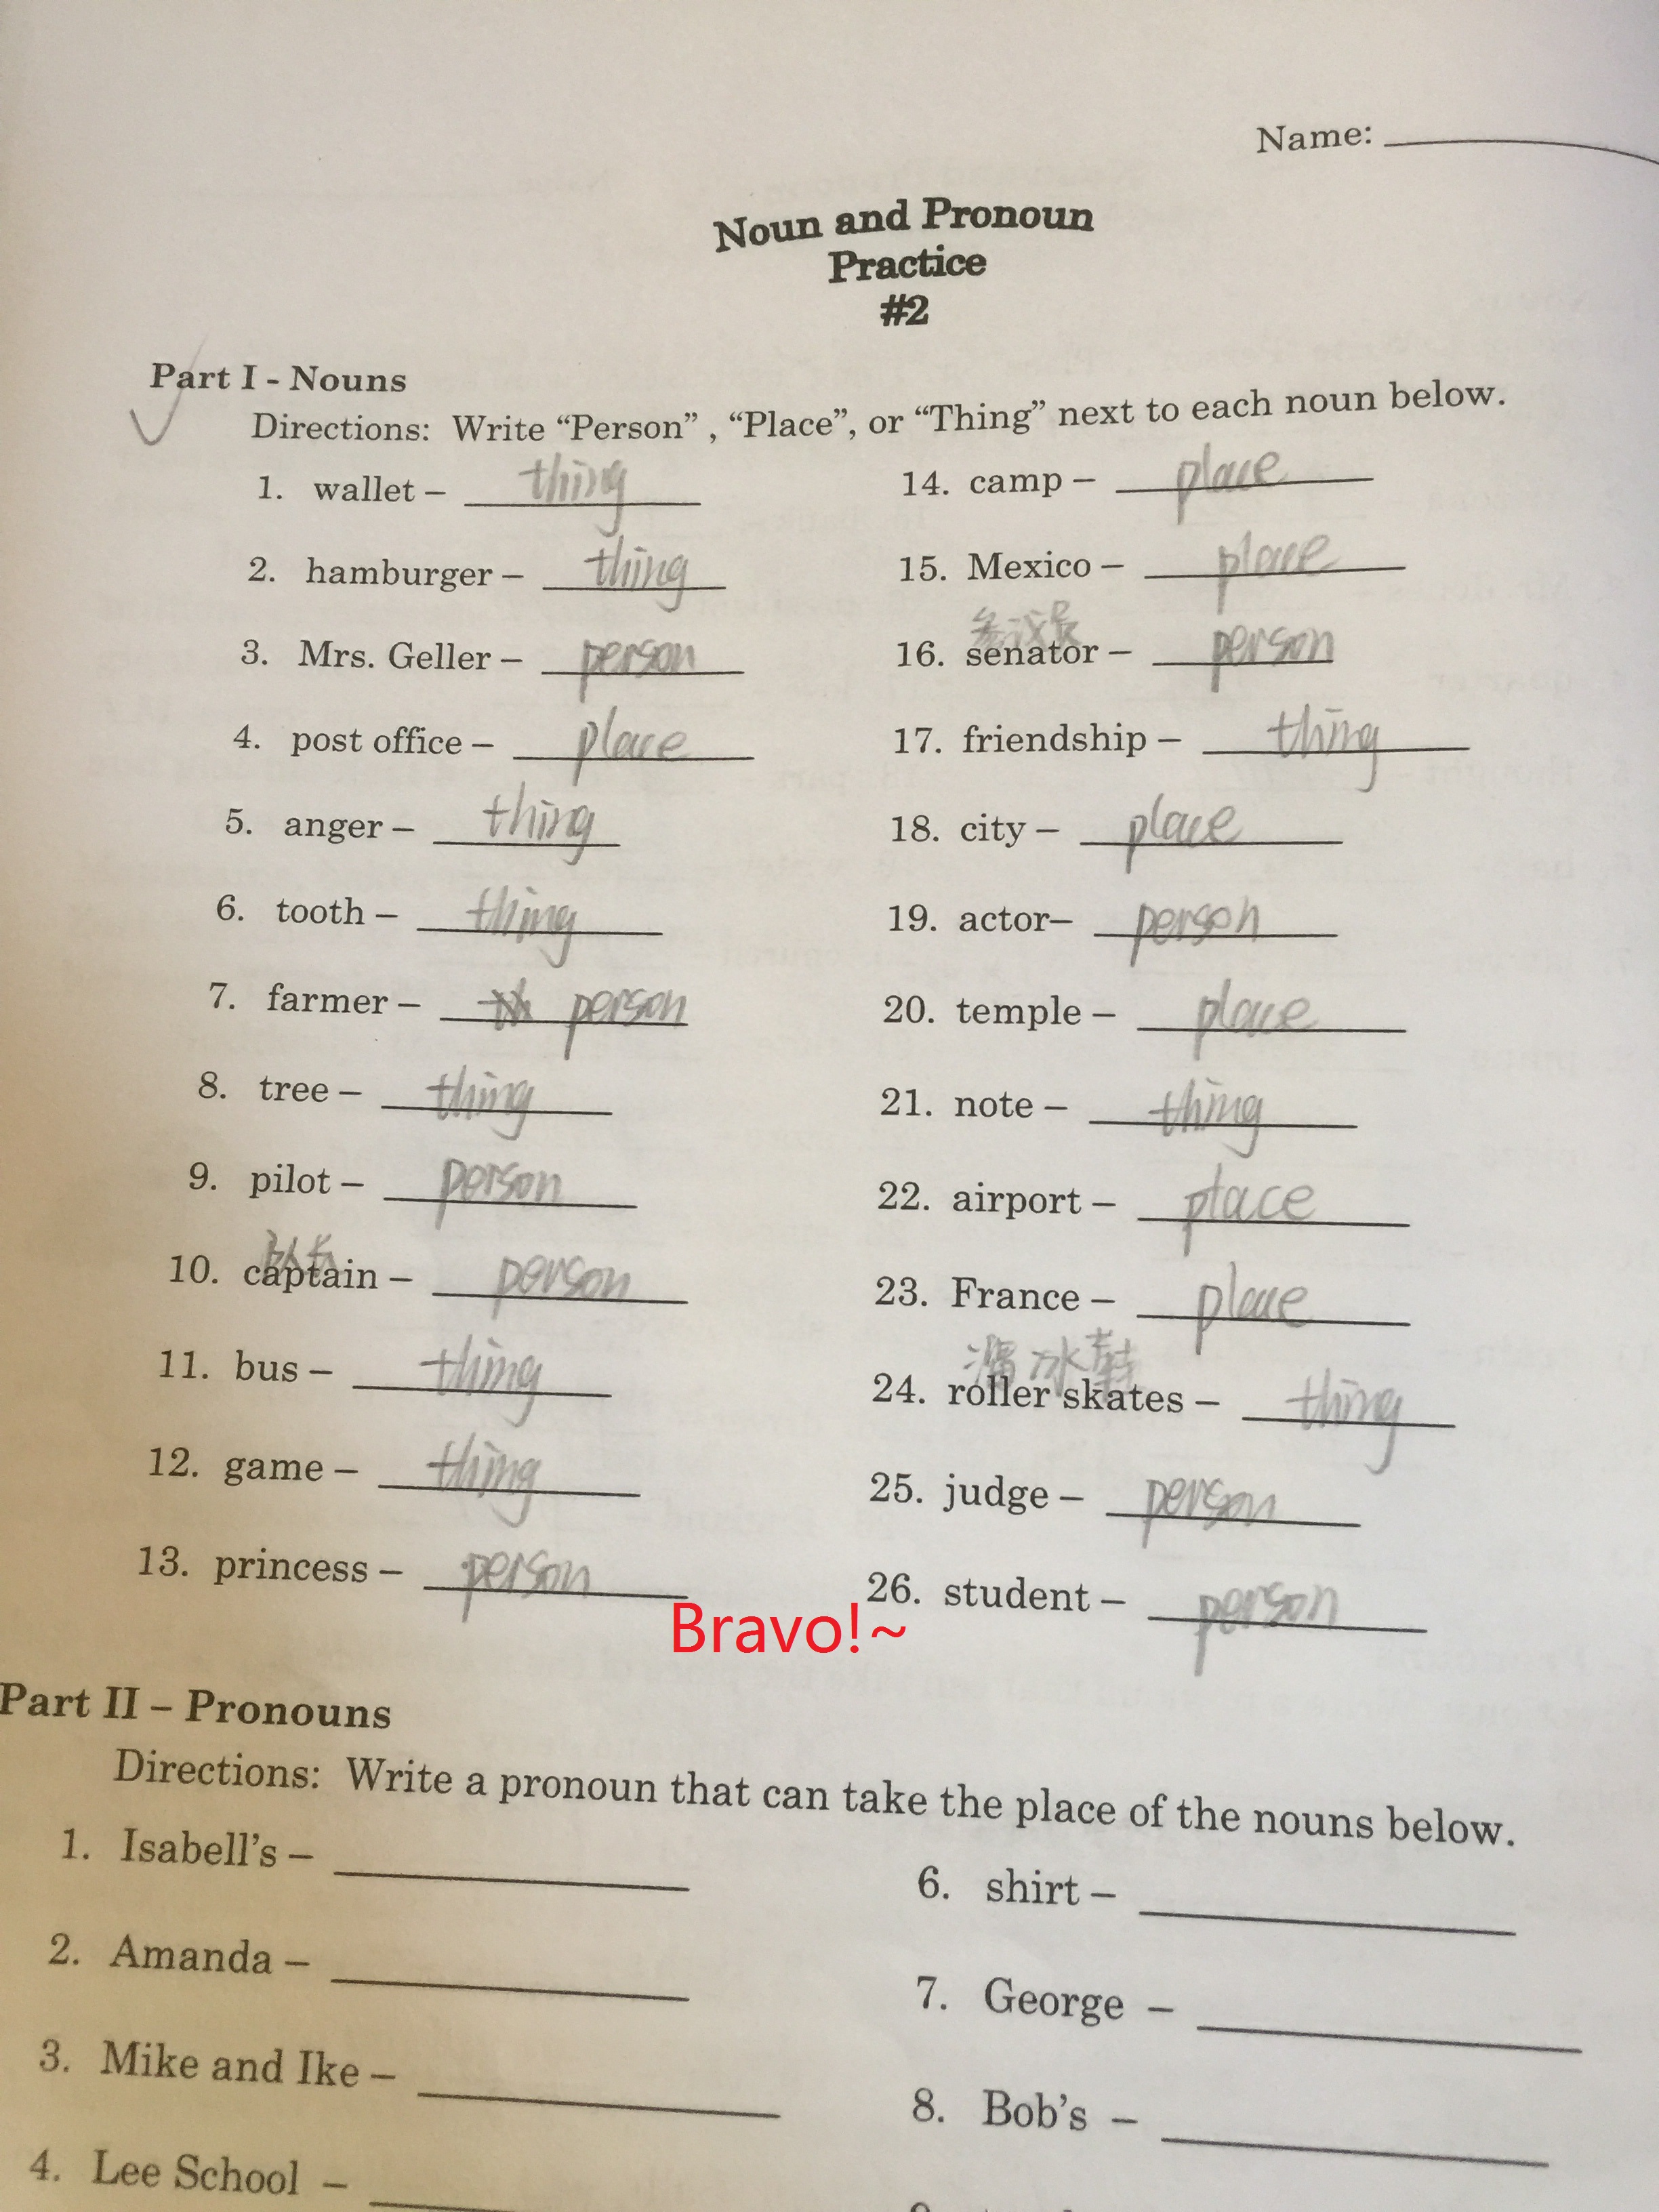 Name:
Noun and Pronoun
Practice
#2
Part I - Nouns
Directions: Write “Person” , “Place”, or “Thing” next to each noun below.
1. wallet – thing
2. hamburger – thing
3. Mrs. Geller – person
4. post office – place
5. anger – thing
6. tooth – thing
7. farmer – person
8. tree – thing
9. pilot – person
队长
10. captain – person
11. bus – thing
12. game – thing
13. princess – person
14. camp – place
15. Mexico – place
参议员
16. senator – person
17. friendship – thing
18. city – place
19. actor– person
20. temple – place
21. note – thing
22. airport – place
23. France – place
溜冰鞋
24. roller skates – thing
25. judge – person
26. student – person
Bravo!~
Part II – Pronouns
Directions: Write a pronoun that can take the place of the nouns below.
1. Isabell’s –
2. Amanda –
3. Mike and Ike –
4. Lee School –
6. shirt –
7. George –
8. Bob’s –